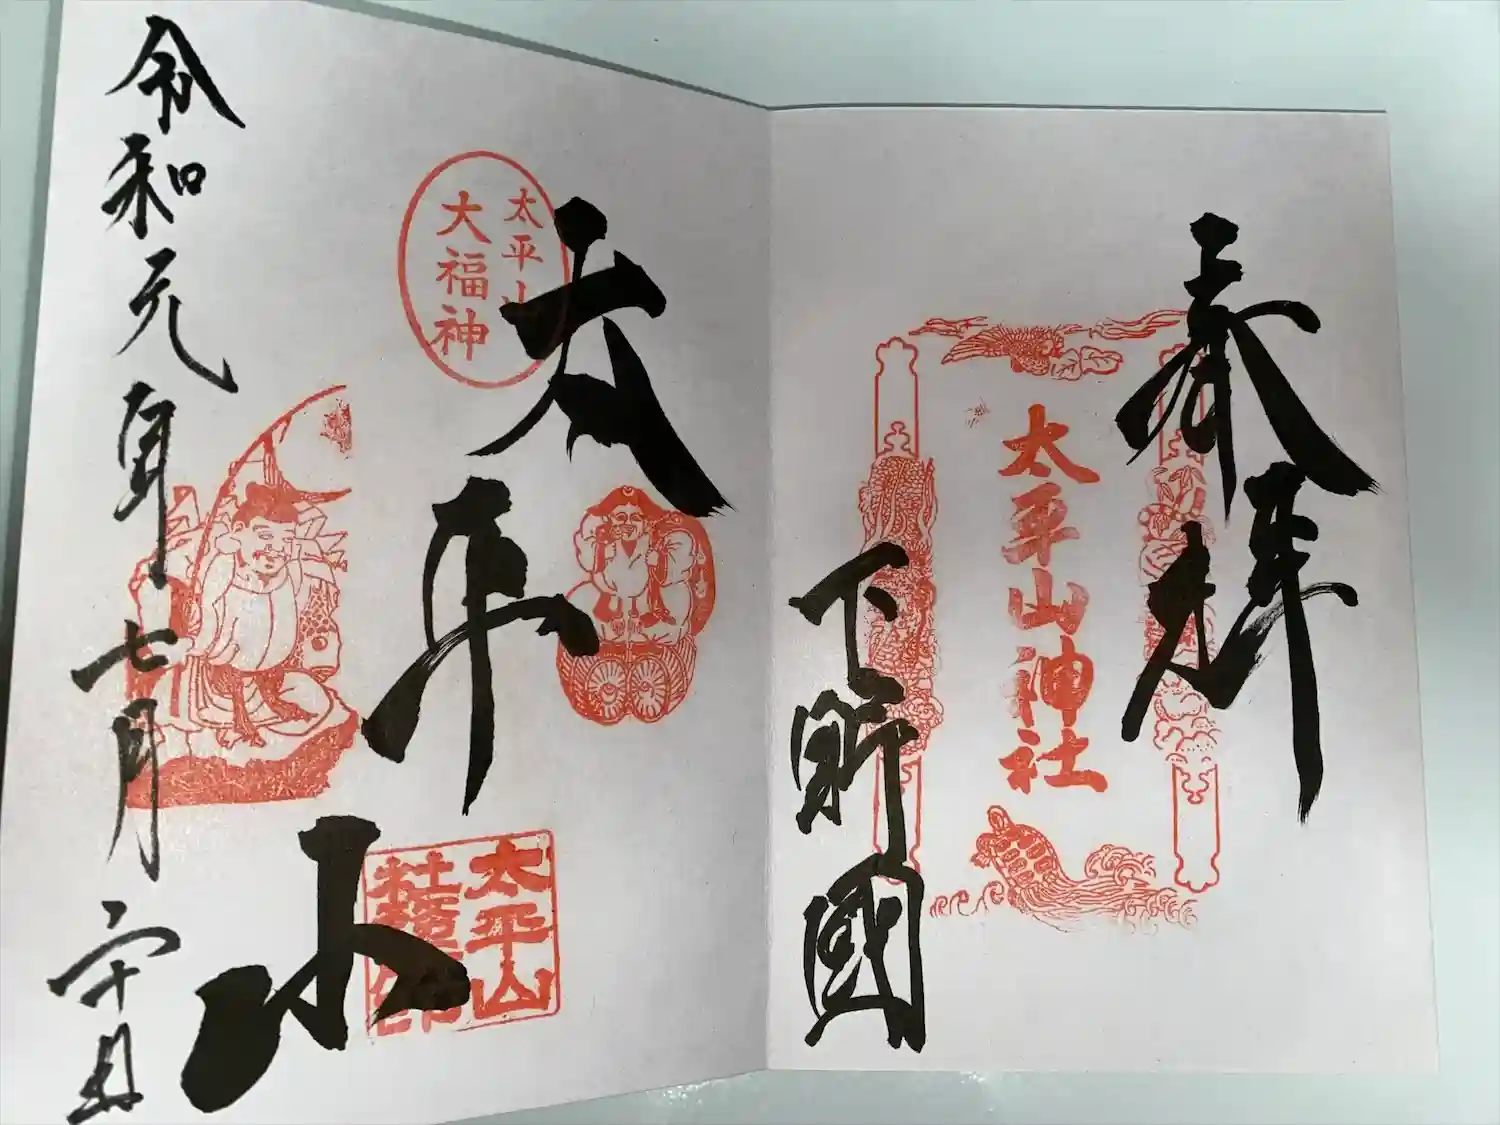 奉拜
太平山神社
下野國
太平山
太平山
大福神
太平山
令和元年七月二十日